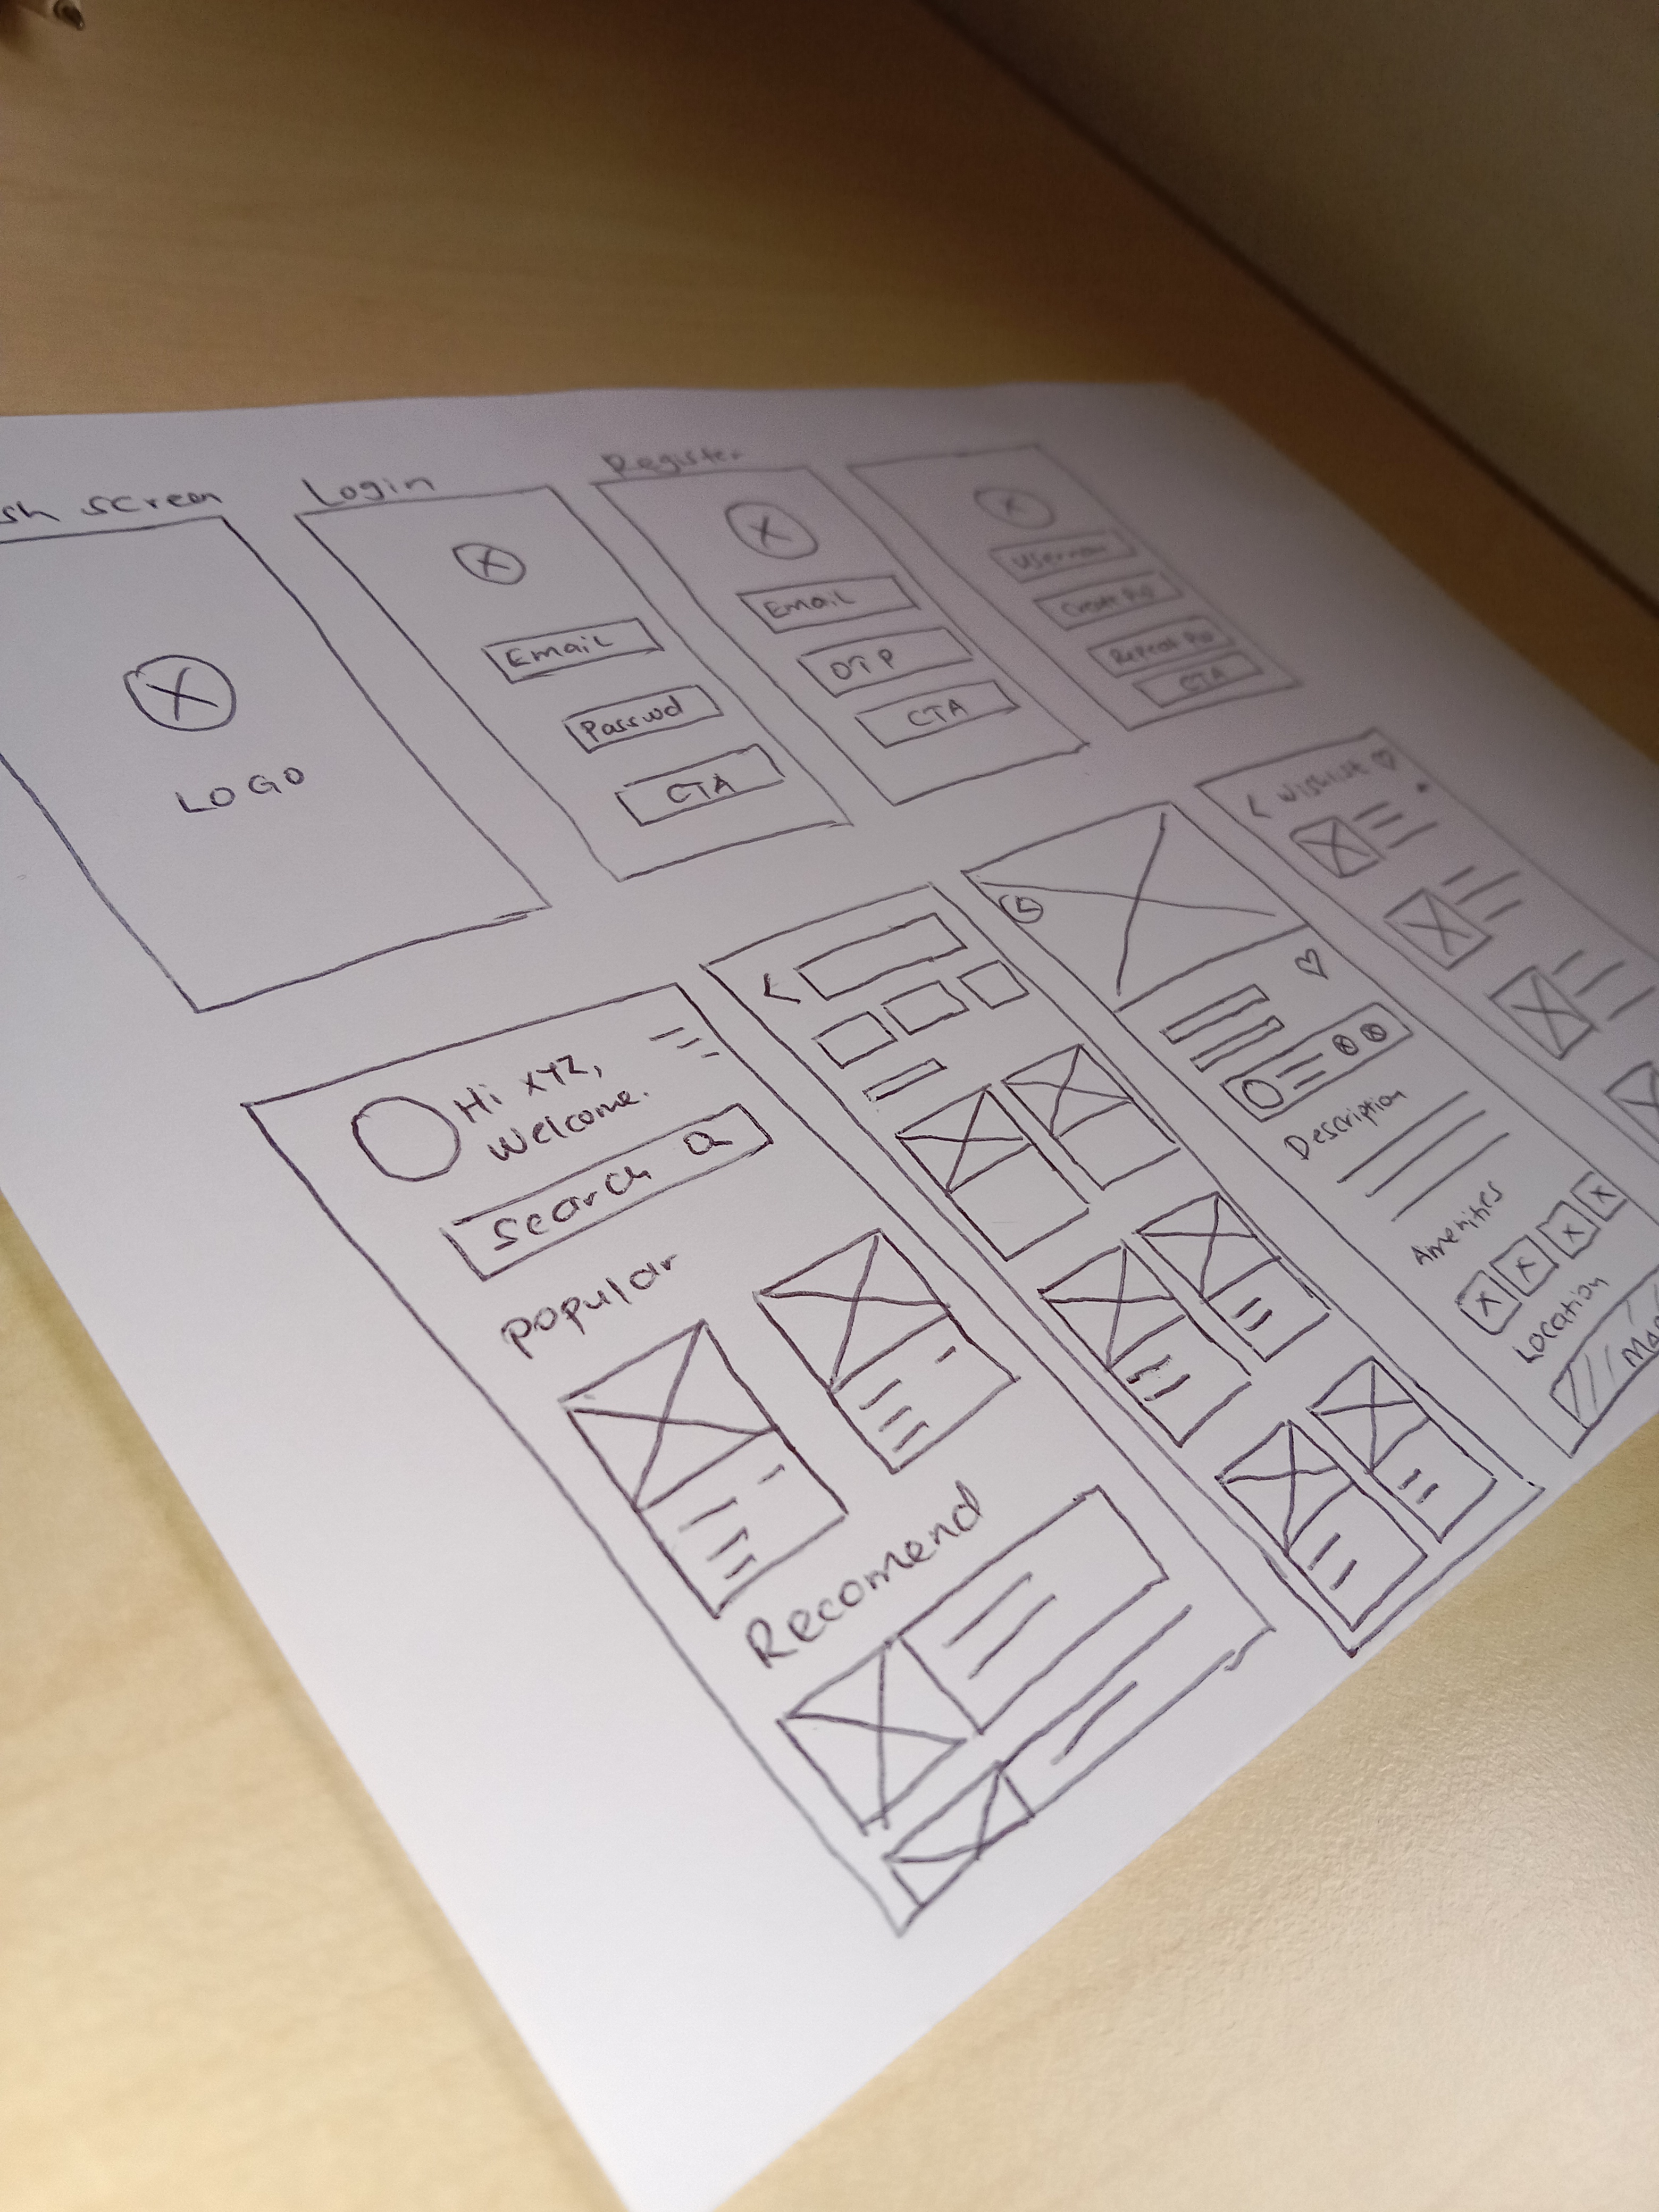 sh screen
LOGO
Login
Email
Passwd
CTA
Register
Email
OTP
CTA
Usernam
Create
Repeat
CTA
Hi XYZ,
Welcome.
Search
Popular
Recomend
Description
Amenities
Location
Map
Wishlist